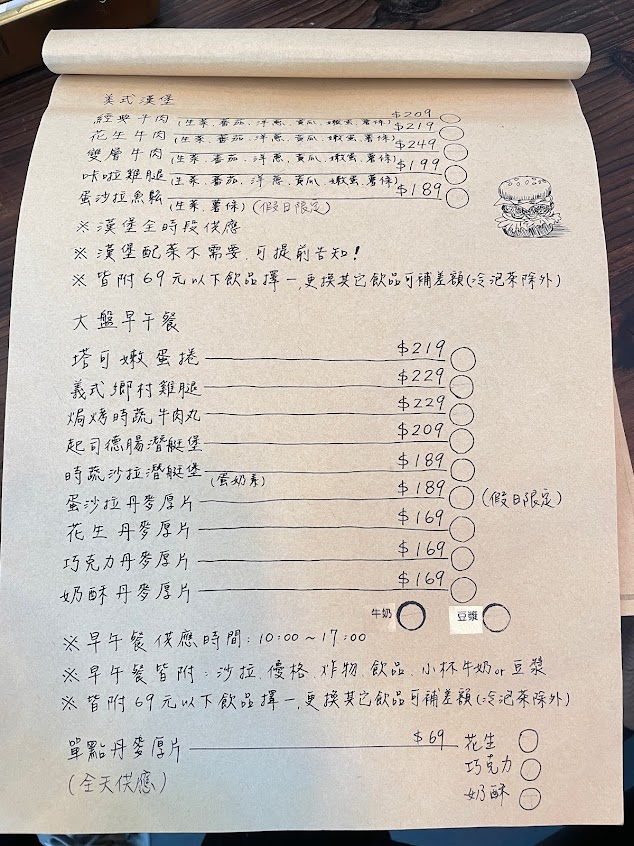 美式漢堡
經典牛肉 (生菜、番茄、洋蔥、黃瓜、嫩蛋、薯條) $209
花生牛肉 (生菜、番茄、洋蔥、黃瓜、嫩蛋、薯條) $219
雙層牛肉 (生菜、番茄、洋蔥、黃瓜、嫩蛋、薯條) $249
咔啦雞腿 (生菜、番茄、洋蔥、黃瓜、嫩蛋、薯條) $199
蛋沙拉魚鬆 (生菜、薯條) (假日限定) $189
※漢堡全時段供應
※漢堡配菜不需要,可提前告知!
※皆附69元以下飲品擇一,更換其它飲品可補差額(冷泡茶除外)
大盤早午餐
塔可嫩蛋捲 $219
義式鄉村雞腿 $229
焗烤時蔬牛肉丸 $229
起司德腸潛艇堡 $209
時蔬沙拉潛艇堡 (蛋奶素) $189
蛋沙拉丹麥厚片 $189 (假日限定)
花生丹麥厚片 $169
巧克力丹麥厚片 $169
奶酥丹麥厚片 $169
牛奶 豆漿
※早午餐供應時間:10:00~17:00
※早午餐皆附:沙拉、優格、炸物、飲品、小杯牛奶or豆漿
※皆附69元以下飲品擇一,更換其它飲品可補差額(冷泡茶除外)
單點丹麥厚片 $69 花生
巧克力
(全天供應)
奶酥